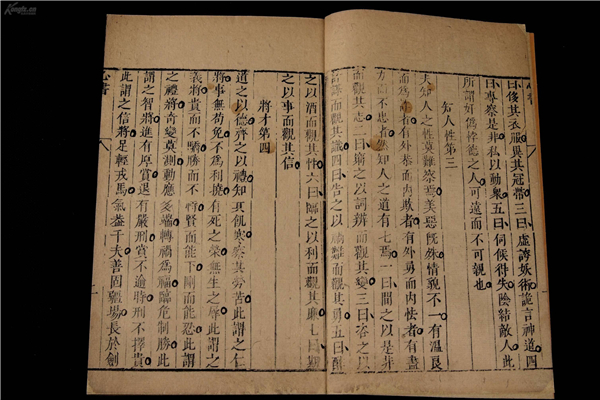 心書
曰侈其衣服異其冠帶三曰虛誇妖術詭言神道四
曰專察是非私以動衆五曰伺候得失陰結敵人此
所謂奸僞悖德之人可遠而不可親也
知人性第三
夫知人之性莫難察焉美惡旣殊情貌不一有溫良
而爲詐者有外恭而內欺者有外勇而內怯者有盡
力而不忠者然知人之道有七焉一曰間之以是非
而觀其志二曰窮之以詞辨而觀其變三曰咨之以
計謀而觀其識四曰告之以禍難而觀其勇五曰醉
之以酒而觀其性六曰臨之以利而觀其廉七曰期
之以事而觀其信
將才第四
道之以德齊之以禮知其飢寒察其勞苦此謂之仁
將事無苟免不爲利撓有死之榮無生之辱此謂之
義將貴而不驕勝而不恃賢而能下剛而能忍此謂
之禮將奇變莫測動應多端轉禍爲福臨危制勝此
謂之智將進有厚賞退有嚴刑賞不逾時刑不擇貴
此謂之信將足輕戎馬氣蓋千夫善固疆場長於劍
心書
Kongfz.cn